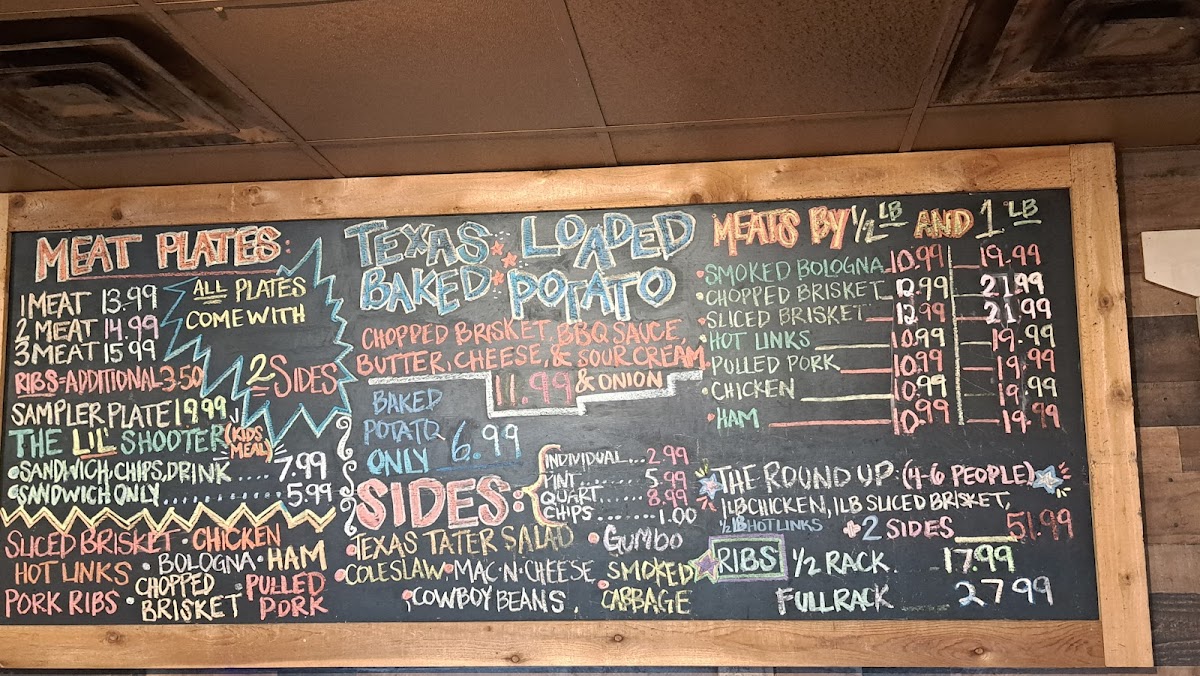 MEAT PLATES:
1 MEAT 13.99
2 MEAT 14.99
3 MEAT 15.99
RIBS=ADDITIONAL 3.50
SAMPLER PLATE 19.99
ALL PLATES
COME WITH
2 SIDES
THE LIL' SHOOTER (KIDS MEAL)
•SANDWICH, CHIPS, DRINK .... 7.99
•SANDWICH ONLY ............ 5.99
SLICED BRISKET • CHICKEN
HOT LINKS • BOLOGNA • HAM
PORK RIBS • CHOPPED BRISKET • PULLED PORK
TEXAS LOADED
BAKED POTATO
CHOPPED BRISKET, BBQ SAUCE,
BUTTER, CHEESE, & SOUR CREAM
11.99 & ONION
BAKED
POTATO
ONLY 6.99
SIDES:
INDIVIDUAL... 2.99
PINT....... 5.99
QUART....... 8.99
CHIPS....... 1.00
•TEXAS TATER SALAD • GUMBO
•COLESLAW • MAC-N-CHEESE • SMOKED CABBAGE
•COWBOY BEANS
MEATS BY 1/2 LB AND 1 LB
•SMOKED BOLOGNA 10.99 19.99
•CHOPPED BRISKET 12.99 21.99
•SLICED BRISKET 12.99 21.99
•HOT LINKS 10.99 19.99
•PULLED PORK 10.99 19.99
•CHICKEN 10.99 19.99
•HAM 10.99 19.99
THE ROUND UP: (4-6 PEOPLE)
1LB CHICKEN, 1LB SLICED BRISKET,
1/2 LB HOT LINKS +2 SIDES 51.99
RIBS 1/2 RACK 17.99
FULL RACK 27.99